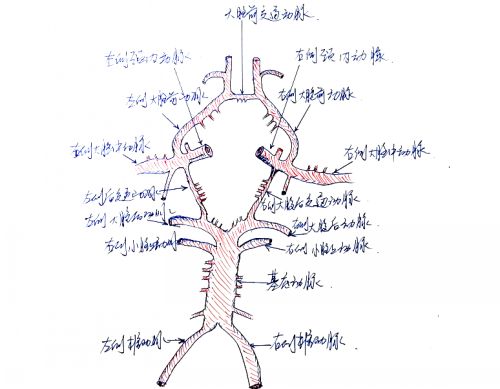 大脑前交通动脉
左侧颈内动脉
右侧颈内动脉
左侧大脑前动脉
右侧大脑前动脉
左侧大脑中动脉
右侧大脑中动脉
左侧后交通动脉
右侧大脑后交通动脉
左侧大脑后动脉
右侧大脑后动脉
左侧小脑上动脉
右侧小脑上动脉
基底动脉
左侧椎动脉
右侧椎动脉